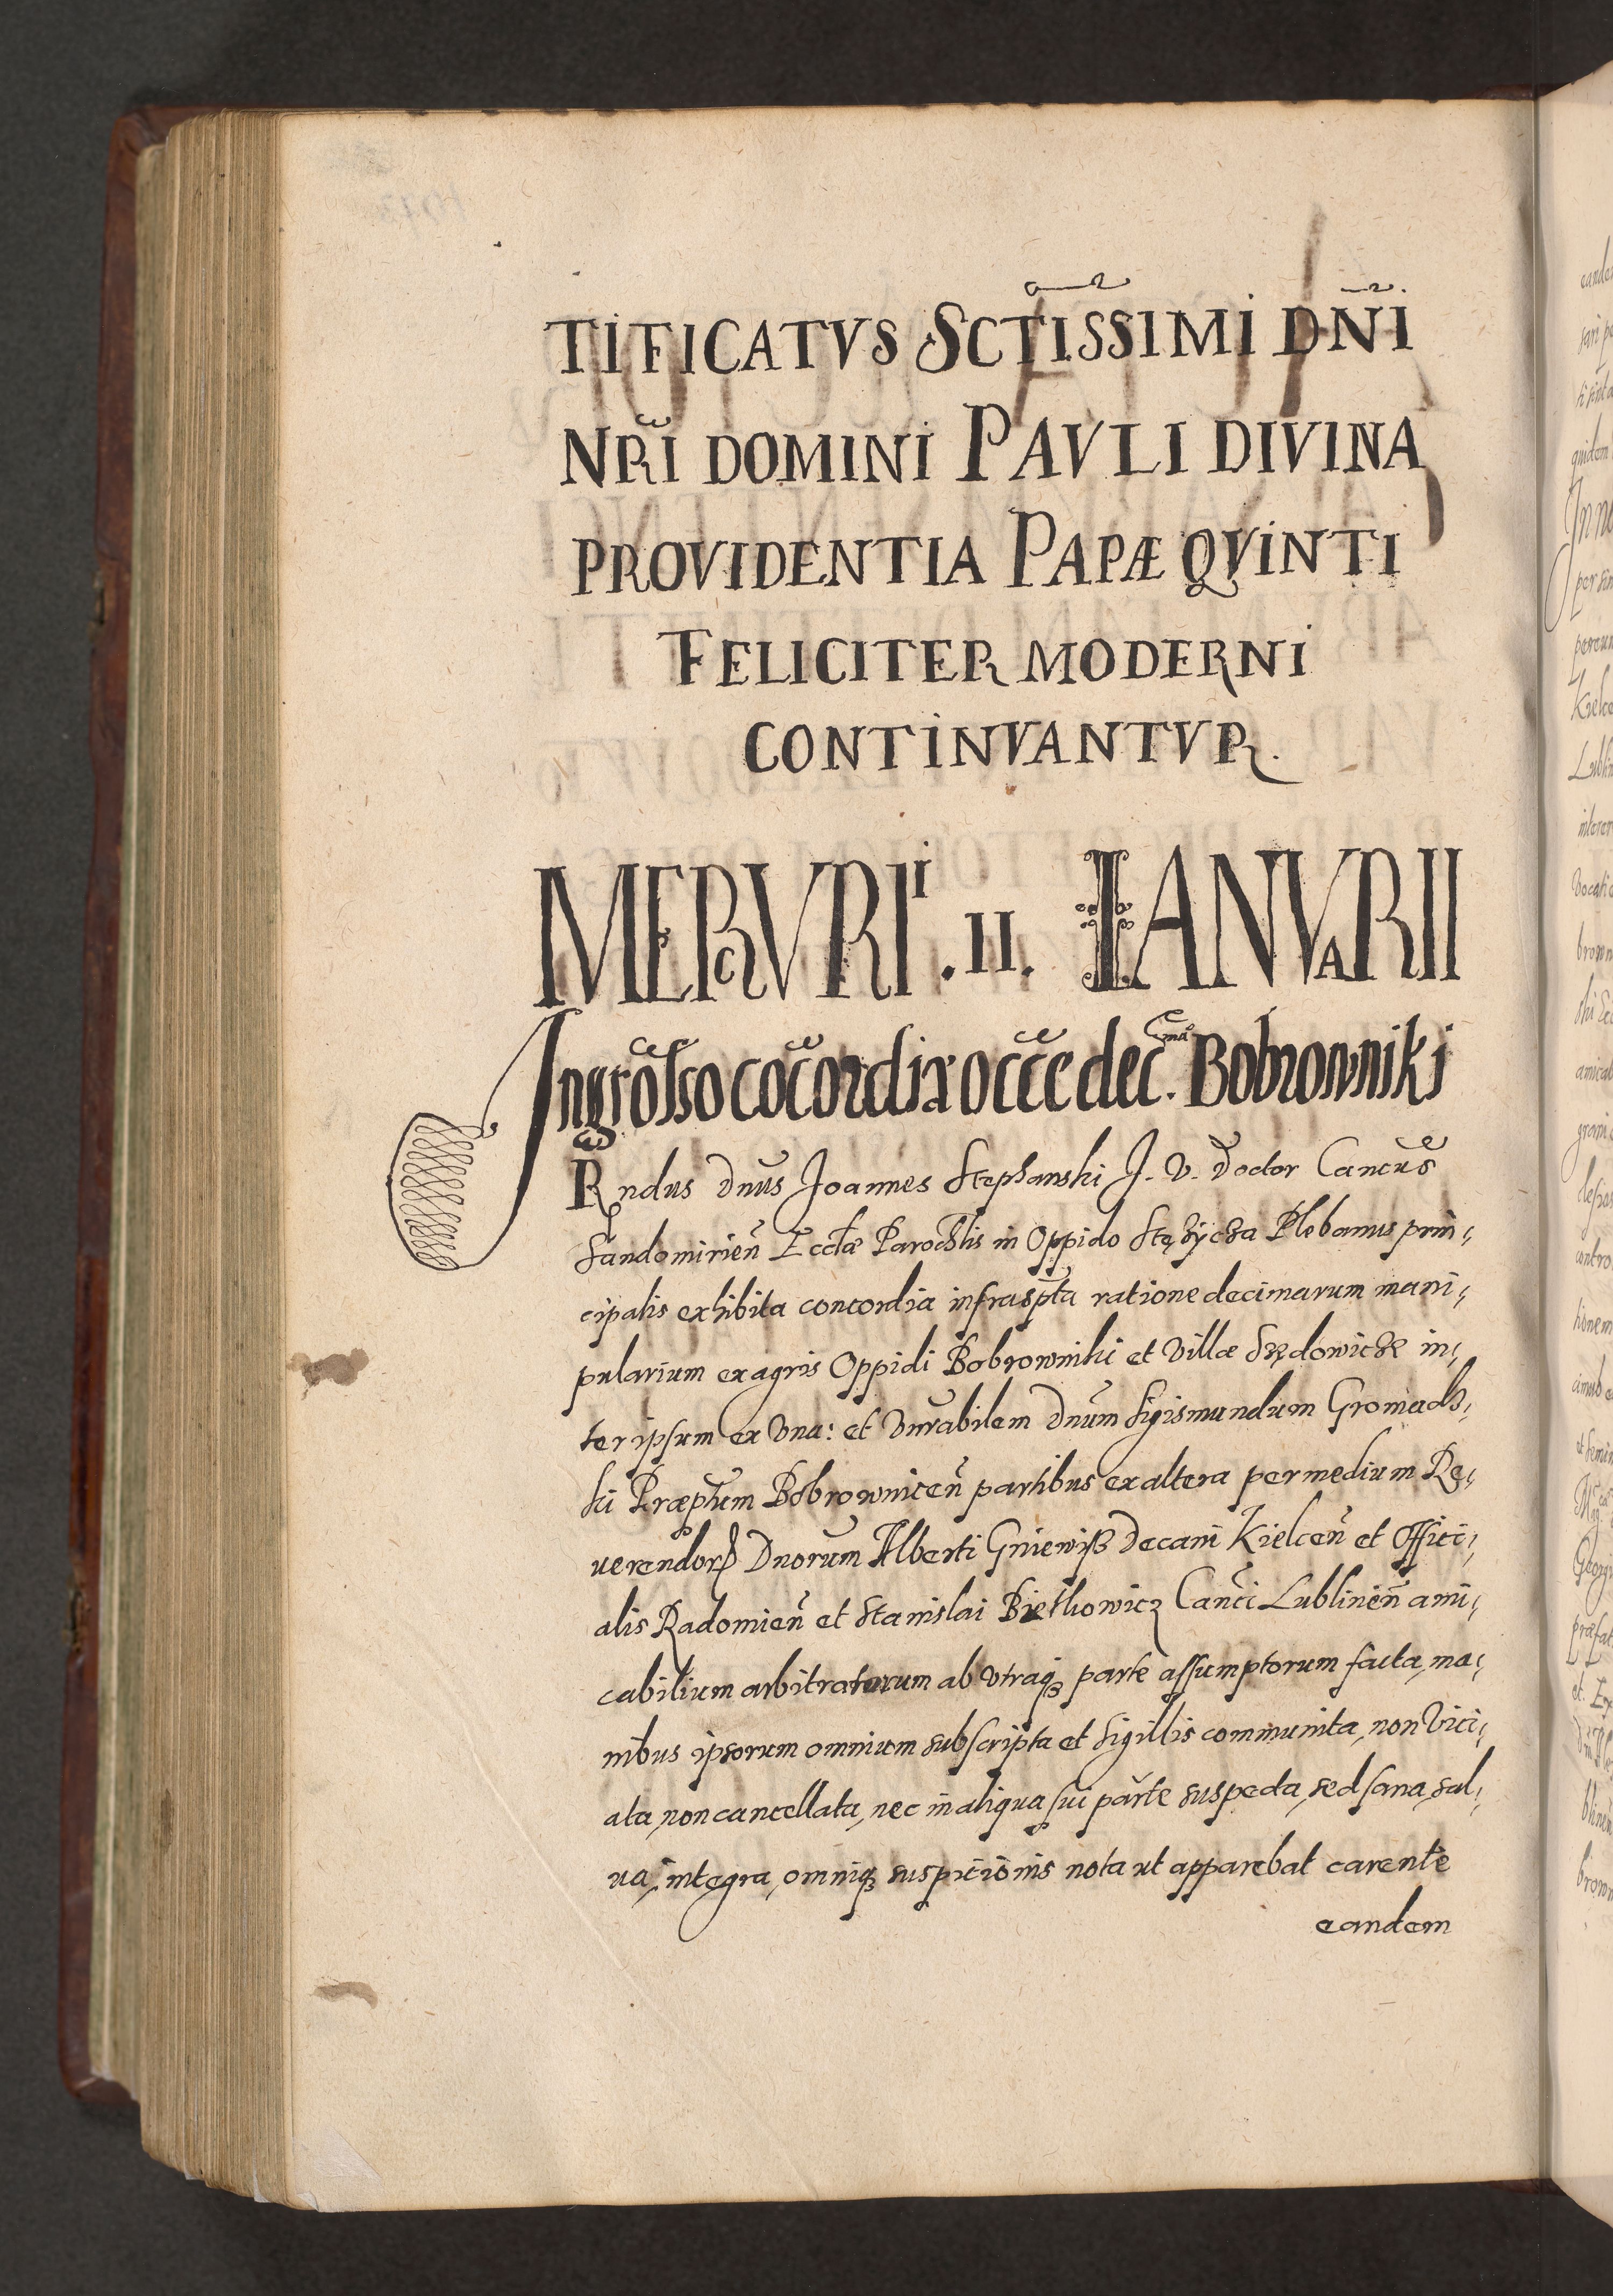 TIFICATVS SCTISSIMI DÑI
NRI DOMINI PAVLI DIVINA
PROVIDENTIA PAPÆ QVINTI
FELICITER MODERNI
CONTINVANTVR.
MERCVRII .II. IANVARII
Ingrosso cocordiæ occe dec. Bobrowniki
Rndus Dnus Joannes Stephanski J. V. Doctor Cancus
Sandomirien Ecclæ Parochlis in Oppido Stęzycza Plebanus prin
cipalis exhibita concordia infraspta ratione decimarum mani
pularium ex agris Oppidi Bobrowniki et Villæ Sędowicze in
ter ipsum ex Vna: et Vnrabilem Dnum Sigismundum Gromadz
ki Præptum Bobrownicen partibus ex altera per medium Re
uerendor Dnorum Alberti Gniewiß Decani Kielcen et Offici
alis Radomien et Stanislai Bietkowicz Canci Lublinen ami
cabilium arbitratorum ab Vtraq parte assumptorum facta, ma
nibus ipsorum omnium subscripta et Sigillis communita, non Vici
ata, non cancellata, nec in aliqua sui parte suspecta, sed sana, sal
ua, integra, omniq suspicionis nota ut apparebat carente
eandem